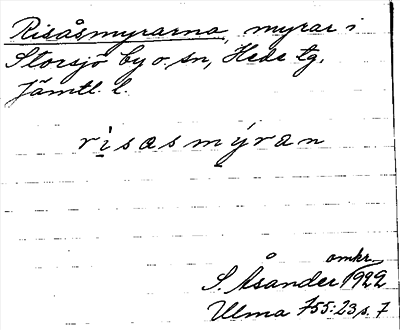 Risåsmyrarna, myrar i
Storsjö by o. sn, Hede tg.
Jämtl. l.
risasmýran
omkr.
S. Åsander 1922
Ulma 755:23 s. 7